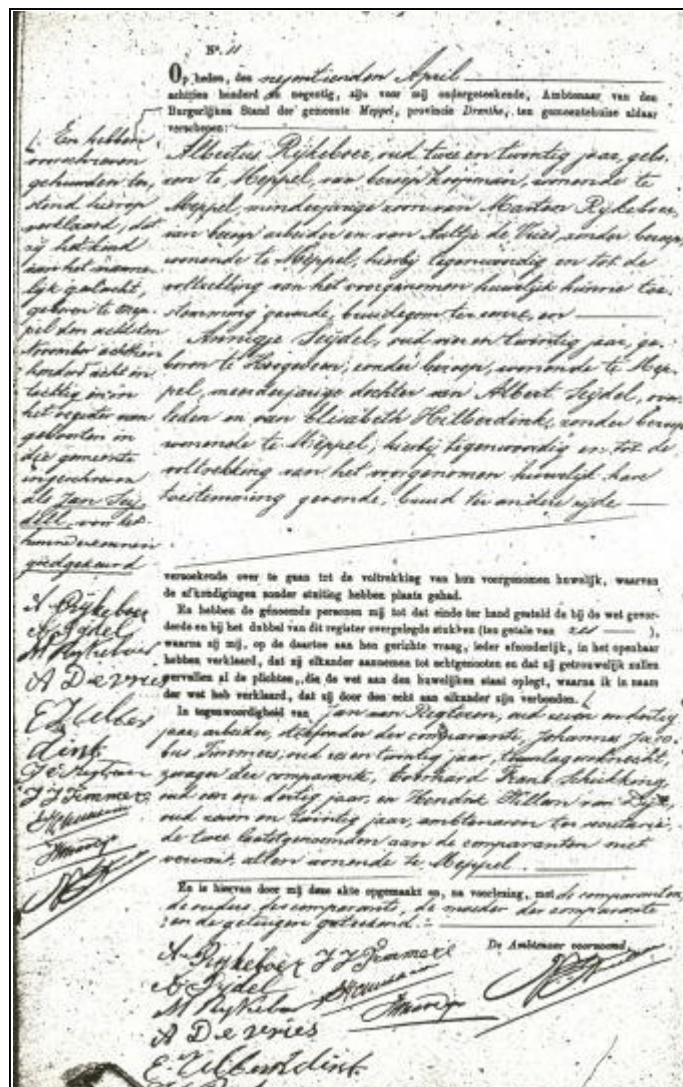 No. 11
Op heden, den negentienden April
achttien honderd en negentig, zijn voor mij ondergeteekende, Ambtenaar van den
Burgerlijken Stand der gemeente Meppel, provincie Drenthe, ten gemeentehuize aldaar
verschenen:
Albertus Rijkeboer, oud twee en twintig jaar, gebo-
ren te Meppel, van beroep koopman, wonende te
Meppel, minderjarige zoon van Marten Rijkeboer,
van beroep arbeider en van Aaltje de Vries, zonder beroep,
wonende te Meppel, hierbij tegenwoordig en tot de
voltrekking van het voorgenomen huwelijk hunne toe-
stemming gevende, bruidegom ter eenre, en
Annigje Seijdel, oud een en twintig jaar, ge-
boren te Hoogeveen, zonder beroep, wonende te Mep-
pel, minderjarige dochter van Albert Seijdel, over-
leden en van Elisabeth Hilberdink, zonder beroep
wonende te Meppel, hierbij tegenwoordig en tot de
voltrekking van het voorgenomen huwelijk hare
toestemming gevende, bruid ter andere zijde
verzoekende over te gaan tot de voltrekking van hun voorgenomen huwelijk, waarvan
de afkondigingen zonder stuiting hebben plaats gehad.
En hebben de genoemde personen mij tot dat einde ter hand gesteld de bij de wet gevor-
derde en bij het dubbel van dit register overgelegde stukken (ten getale van zes),
waarna zij mij, op de daartoe aan hen gerichte vraag, ieder afzonderlijk, in het openbaar
hebben verklaard, dat zij elkander aannemen tot echtgenooten en dat zij getrouwelijk zullen
vervullen al de plichten, die de wet aan den huwelijken staat oplegt, waarna ik in naam
der wet heb verklaard, dat zij door den echt aan elkander zijn verbonden.
In tegenwoordigheid van Jan van Regteren, oud zeven en dertig
jaar, arbeider, der comparante, Johannes Jaco-
bus Timmers, oud zes en twintig jaar,
zwager der comparante, Everhard Frans Schukking,
oud een en dertig jaar, en Hendrik Willem van
oud zeven en twintig jaar, ambtenaren ter secretarie,
de twee laatstgenoemden aan de comparanten niet
verwant, allen wonende te Meppel.
En is hiervan door mij deze akte opgemaakt en, na voorlezing, met de comparanten,
de ouders des comparants, de moeder der comparante
en de getuigen geteekend.
De Ambtenaar voornoemd,
A Rijkeboer J J Timmers
A Sydel
M Rykeboer
A De vries
E Hilberdink
En hebben
voorschreven
gehuwden ten
stond hierop
verklaard, dat
zij het kind
van het manne-
lijk geslacht,
geboren te Mep-
pel den achtsten
November achttien
honderd acht en
tachtig en in
het register van
geboorten in
die gemeente
ingeschreven
als Jan Seij-
dell, voor het
hunne erkennen
goedgekeurd
A Rijkeboer
A Sydel
M Rykeboer
A De vries
E Hilber
dink
J J Timmer